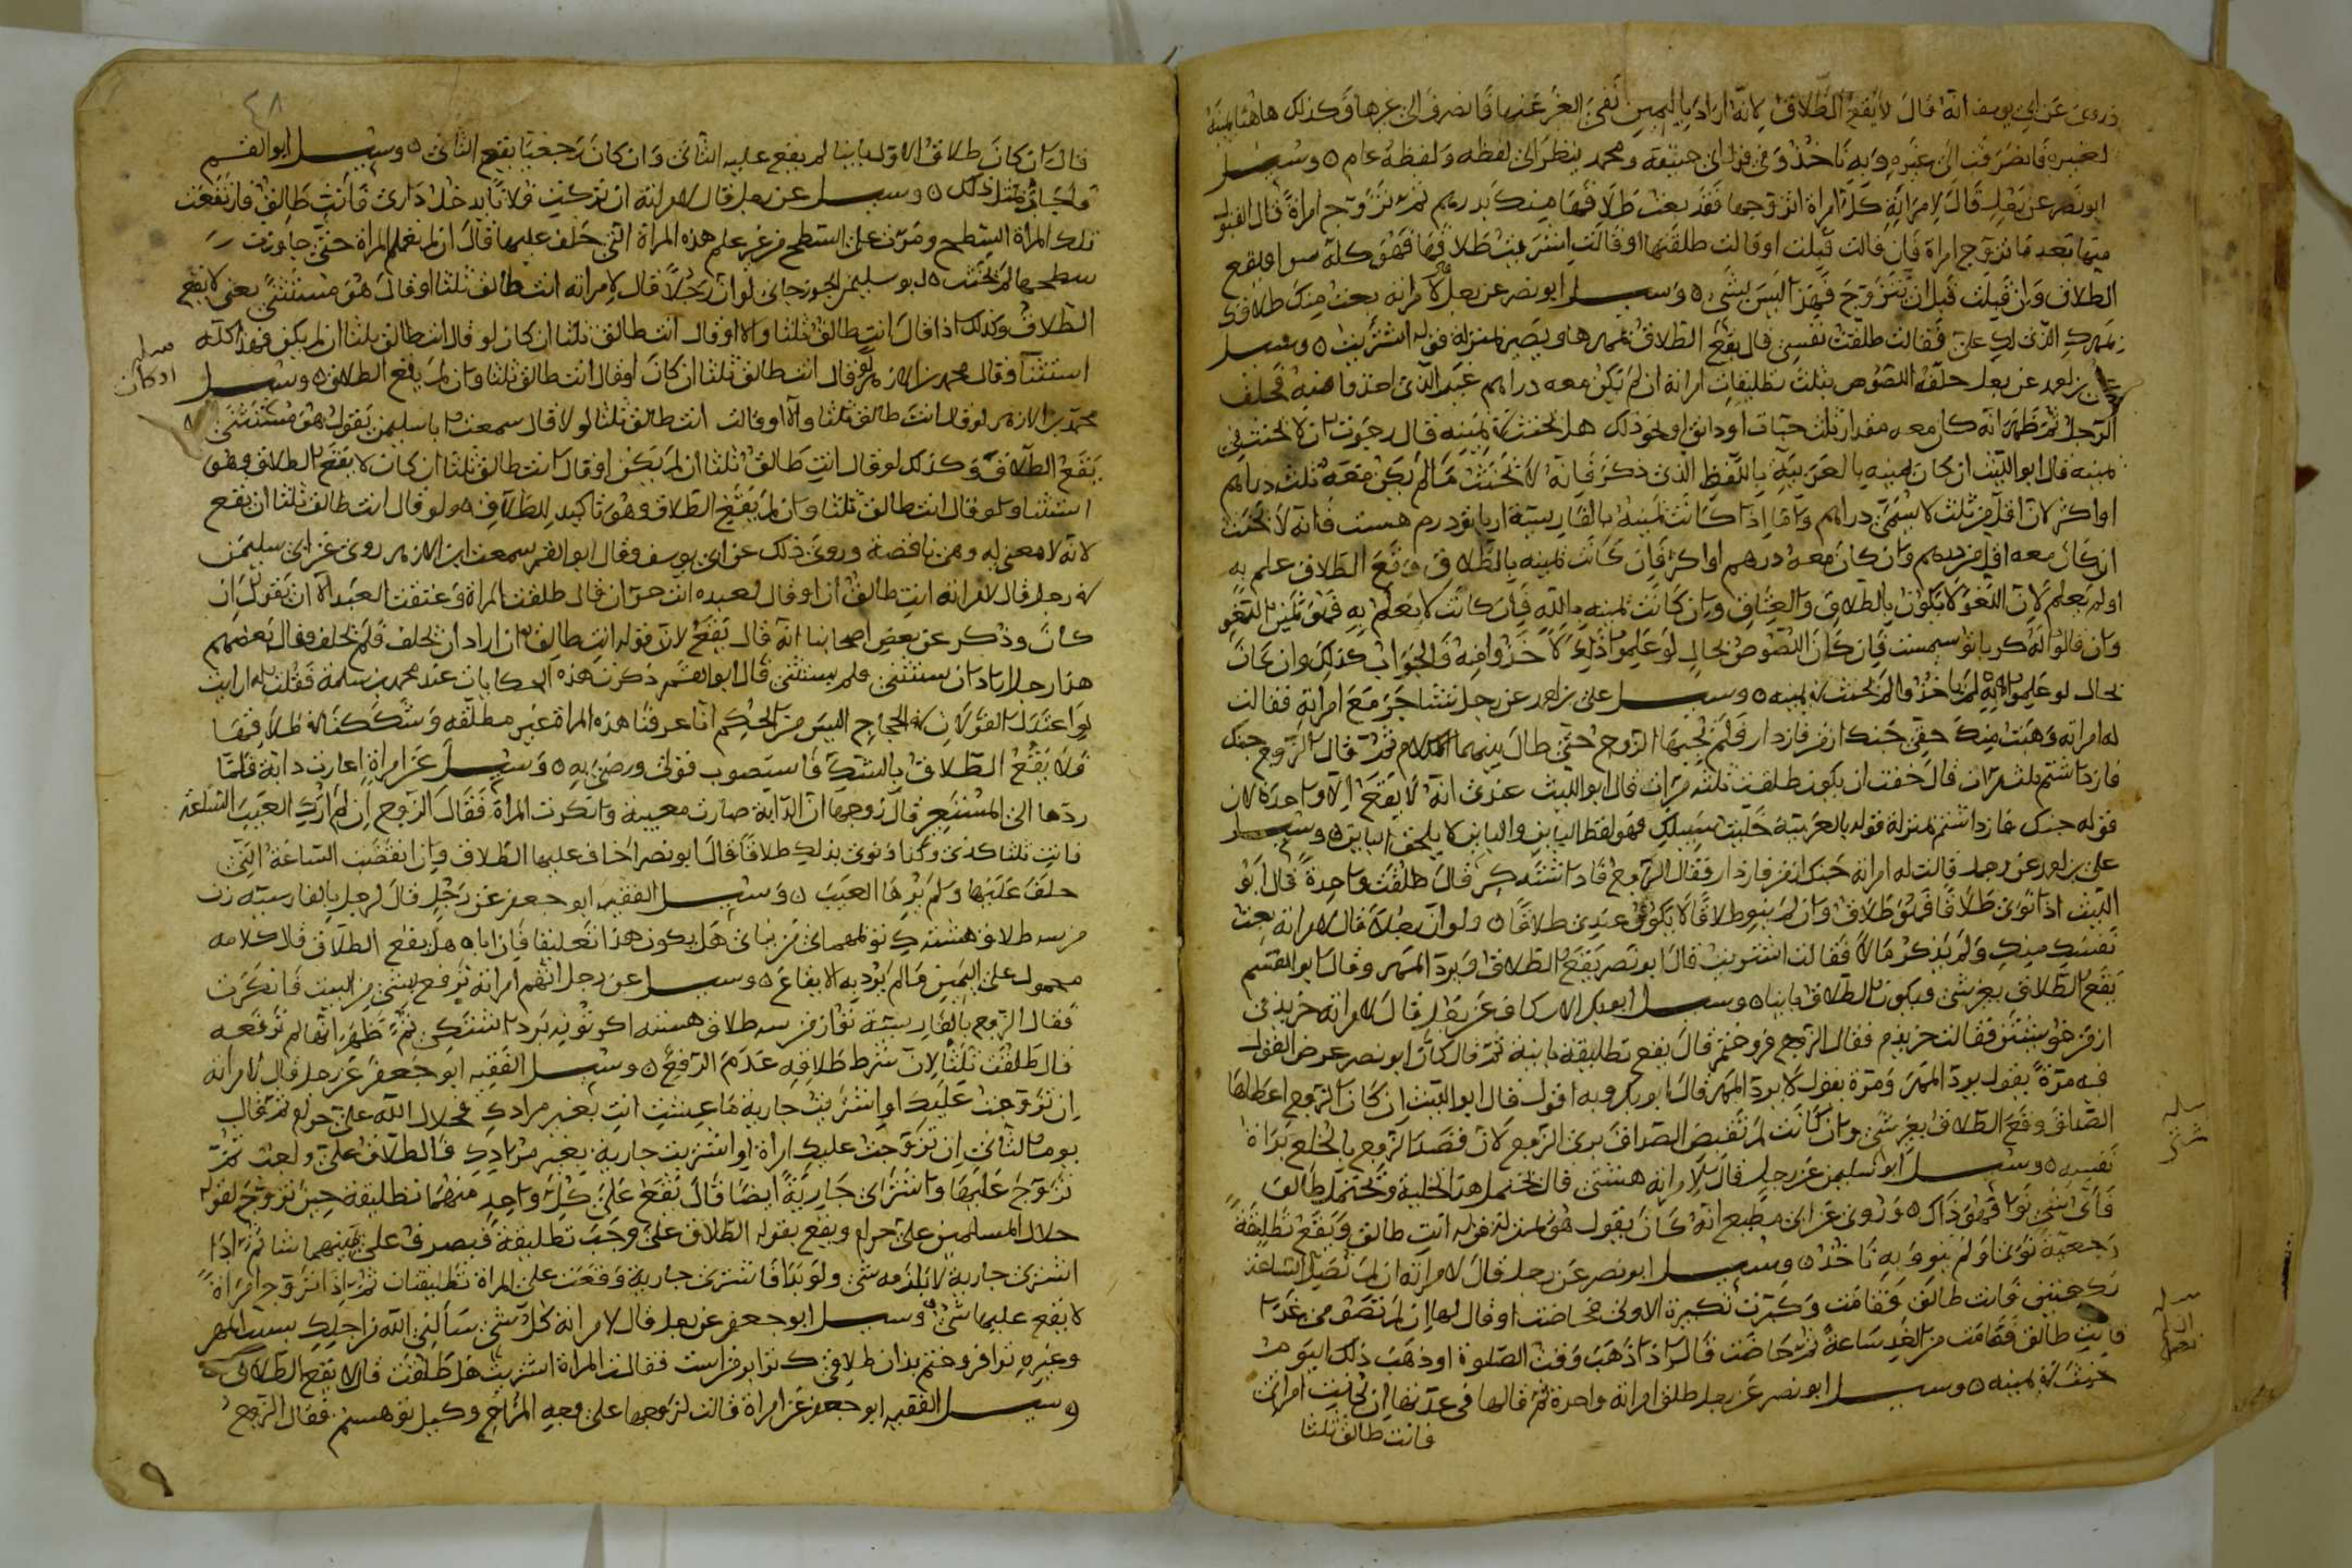 وروى عن ابي يوسف انه قال لا يقع الطلاق لانه اراد باليمين نفي العز عنها فانصرف الى غيرها وكذلك هاهنا يمينه
لغيره فانصرفت الى غيره وبه ناخذ وفي قول ابي حنيفة ومحمد ينظر الى لفظه ولفظه عام ٥ وسئل
ابو نصر عن رجل قال لامراته كل امراة اتزوجها فقد بعت طلاقها منك بدرهم ثم تزوج امراة قال القبول
منها بعد ما تزوج امراة فان قالت قبلت او قالت طلقتها او قالت اشتريت طلاقها فهو كله سوا ويقع
الطلاق وان قبلت قبل ان يتزوج فهذا ليس بشي ٥ وسئل ابو نصر عن رجل قال لامراته بعت منك طلاقك
بمهرك الذي لك علي فقالت طلقت نفسي قال يقع الطلاق بمهرها ويصير بمنزلة قوله اشتريت ٥ وسئل
علي بن احمد عن رجل حلفه اللصوص بثلث تطليقات امراته ان لم يكن معه دراهم غير الذي اخذوا منه فحلف
الرجل ثم ظهر انه كان معه مقدار ثلث حبات او دانق او نحو ذلك هل يحنث في يمينه قال رجوت ان لا يحنث في
يمينه قال ابو الليث ان كان يمينه بالعربية باللفظ الذي ذكر فانه لا يحنث ما لم يكن معه ثلث دراهم
او اكثر لان اقل من ثلث لا يسمى دراهم واما اذا كانت يمينه بالفارسية ار با تو درم هست فانه لا يحنث
ان كان معه اقل من درهم وان كان معه درهم او اكثر فان كانت يمينه بالطلاق وقع الطلاق علم به
او لم يعلم لان اللغو لا يكون بالطلاق والعتاق وان كانت يمينه بالله فان كانت لا يعلم به فهو يمين اللغو
وان قالوا له كر با تو سيم است فان كان اللصوص بحال لو علموا ذلك لاخذوا منه فالجواب كذلك وان كان
بحال لو علموا به لم ياخذوا لم يحنث في يمينه ٥ وسئل علي بن احمد عن رجل تشاجر مع امراته فقالت
له امراته وهبت منك حقي جنك از من فازدار فلم يجبها الزوج حتى طال بينهما الكلام ثم قال الزوج جنك
فازداشتم ثلث مرات قال خفت ان يكون طلقت ثلث مرات قال ابو الليث عندي انه لا يقع الا واحدة لان
قوله جنك فازداشتم بمنزلة قوله بالعربية خليت سبيلك فهو لفظ البائن والبائن لا يلحق البائن ٥ وسئل
علي بن احمد عن رجل قالت له امراته جنك از من فازدار فقال الزوج فاداشته كر قال طلقت واحدة قال ابو
الليث اذا نوى طلاقا فهو طلاق وان لم ينو طلاقا لا يكون عندي طلاقا ٥ ولو ان رجلا قال لامراته بعت
نفسك منك ولم يذكر مالا فقالت اشتريت قال ابو نصر يقع الطلاق ويرد المهر وقال ابو القسم
يقع الطلاق بغير شي ويكون الطلاق باينا ٥ وسئل ابو بكر الاسكاف عن رجل قال لامراته خريدي
از من خويشتن فقالت خريدم فقال الزوج فروختم قال يقع تطليقة باينة ثم قال كان ابو نصر عرض القول
فيه مرة يقول يرد المهر ومرة يقول لا يرد المهر قال ابو بكر وبه اقول قال ابو الليث ان كان الزوج اعطاها
الصداق وقع الطلاق بغير شي وان كانت لم تقبض الصداق برى الزوج لان قصد الزوج بالخلع براة
نفسه ٥ وسئل ابو سليمن عن رجل قال لامراته هشتني قال يحتمل هذا الخلية ويحتمل طالق
فاي شي نوا فهو ذاك ٥ وروى عن ابي مطيع انه كان يقول هو بمنزلة قوله انت طالق ويقع تطليقة
رجعية نوى او لم ينو وبه ناخذ ٥ وسئل ابو نصر عن رجل قال لامراته ان لم تصل الساعة
ركعتين فانت طالق فقامت وكبرت تكبيرة الاولى فحاضت او قال لها ان لم تصومي غدا
فانت طالق فقامت من الغد ساعة ثم حاضت قال اذا ذهب وقت الصلوة او ذهب ذلك اليوم
حنث في يمينه ٥ وسئل ابو نصر عن رجل طلق امراته واحدة ثم قال لها في عدتها ان كانت امراتي
فانت طالق ثلثا
٤٨
قال ان كان طلاق الاول باينا لم يقع عليه الثاني وان كان رجعيا يقع الثاني ٥ وسئل ابو القسم
فاجاب بمثل ذلك ٥ وسئل عن رجل قال لامراته ان تركت فلانا يدخل داري فانت طالق فارتفعت
تلك المراة السطح ومرت على السطح من غير علم هذه المراة التي حلف عليها قال ان لم تعلم المراة حتى جاوزت
سطحها لم يحنث ٥ ابو سليمن الجوزجاني لو ان رجلا قال لامراته انت طالق ثلثا او قال هو مستثنى يعني لا يقع
الطلاق وكذلك اذا قال انت طالق ثلثا والا او قال انت طالق ثلثا ان كان لو قال انت طالق ثلثا ان لم يكن فهذا كله
استثنا وقال محمد بن الازهر لو قال انت طالق ثلثا ان كان او قال انت طالق ثلثا وان لم يقع الطلاق ٥ وسئل
محمد بن الازهر لو قال انت طالق ثلثا والا او قالت انت طالق ثلثا لو لا قال سمعت ابا سليمن يقول هو مستثنى
يقع الطلاق وكذلك لو قال انت طالق ثلثا ان لم يكن او قال انت طالق ثلثا ان كان لا يقع الطلاق وهو
استثنا ولو قال انت طالق ثلثا وان لم يقع الطلاق وهو تاكيد للطلاق ٥ ولو قال انت طالق ثلثا ان يقع
لانه لا معنى له وهي ناقصة وروى ذلك عن ابي يوسف وقال ابو القسم سمعت ابن الازهر روى عن ابي سليمن
في رجل قال لامراته انت طالق ان او قال لعبده انت حر ان قال طلقت المراة وعتقت العبد الا ان يقول ان
كان وذكر عن بعض اصحابنا انه قال يقع لان قوله انت طالق ان اراد ان يحلف فلم يحلف وقال بعضهم
هذا رجل اراد ان يستثني فلم يستثني قال ابو القسم ذكرت هذه الحكايات عند محمد بن سلمة فقلت له ارايت
لو اعتدل القولان في الحجاج اليس من الحكم انا عرفنا هذه المراة غير مطلقة وشككنا في طلاقها
فلا يقع الطلاق بالشك فاستصوب قولي ورضي به ٥ وسئل عن امراة اعارت دابة فلما
ردها الى المستعير قال زوجها ان الدابة صارت معيبة وانكرت المراة فقال الزوج ان لم ارك العيب الساعة
فانت ثلثا كذى ونوى بذلك طلاقا قال ابو نصر اخاف عليها الطلاق وان انقضت الساعة التي
حلف عليها ولم يرها العيب ٥ وسئل الفقيه ابو جعفر عن رجل قال لرجل بالفارسية زن
من سه طلاق هشته كر تو بهماني من نيائي هل يكون هذا تعليقا فان اباه هل يقع الطلاق قال كلامه
محمول على اليمين ما لم يرد به الايقاع ٥ وسئل عن رجل اتهم امراته برفع شي من البيت فانكرت
فقال الزوج بالفارسية تو از من سه طلاق هسته اكر تو نه برداشتي ثم ظهر انها لم ترفعه
قال طلقت ثلثا لان شرط طلاقه عدم الرفع ٥ وسئل الفقيه ابو جعفر عن رجل قال لامراته
ان تزوجت عليك او اشتريت جارية ما عشت انت بغير مرادك فحلال الله علي حرام ثم قال
يوم الثاني ان تزوجت عليك امراة او اشتريت جارية بغير مرادك فالطلاق علي واجب ثم
تزوج عليها واشترى جارية ايضا قال يقع على كل واحد منهما تطليقة حين تزوج لقوله
حلال المسلمين علي حرام ويقع بقوله الطلاق علي وجب تطليقة فيصرف على ايهما شا ثم اذا
اشترى جارية لا يلزمه شي ولو بدا فاشترى جارية وقعت على المراة تطليقتان ثم اذا تزوج امراة
لا يقع عليها شي ٥ وسئل ابو جعفر عن رجل قال لامراته كل شي سالني الله من اجلك بسبب المهر
وغيره تو افروختم بذان طلاقي كه ترا بر من است فقالت المراة اشتريت هل طلقت قال لا يقع الطلاق
وسئل الفقيه ابو جعفر عن امراة قالت لزوجها على وجه المزاح وكيل تو هستم فقال الزوج